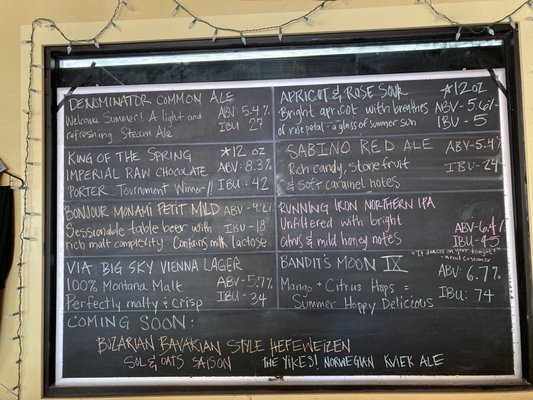 DENOMINATOR COMMON ALE
Welcome Summer! A light and
refreshing Steam Ale
ABV- 5.4%
IBU- 27
KING OF THE SPRING *12 OZ
IMPERIAL RAW CHOCOLATE ABV: 8.3%
PORTER. Tournament Winner!! IBU: 42
BONJOUR MONAMI PETIT MILD ABV-4.2%
Sessionable table beer with IBU-18
rich malt complexity Contains milk lactose
VIA BIG SKY VIENNA LAGER
100% Montana Malt ABV- 5.7%
Perfectly malty & Crisp IBU- 34
APRICOT & ROSE SOUR *12oz
Bright apricot with breathes ABV-5.6%
of rose petal - a glass of summer sun IBU-5
SABINO RED ALE ABV-5.4%
Rich candy, stonefruit IBU-24
& soft caramel notes
RUNNING IRON NORTHERN IPA
Unfiltered with bright ABV-6.4%
citrus & mild honey notes IBU-45
BANDIT'S MOON IX "It dances on your tongue"
Mango + Citrus Hops = ABV: 6.77%
Summer Hoppy Delicious IBU: 74
COMING SOON:
BOZARIAN BAVARIAN STYLE HEFEWEIZEN
SOL & OATS SAISON THE YIKES! NORWEGIAN KVIEK ALE